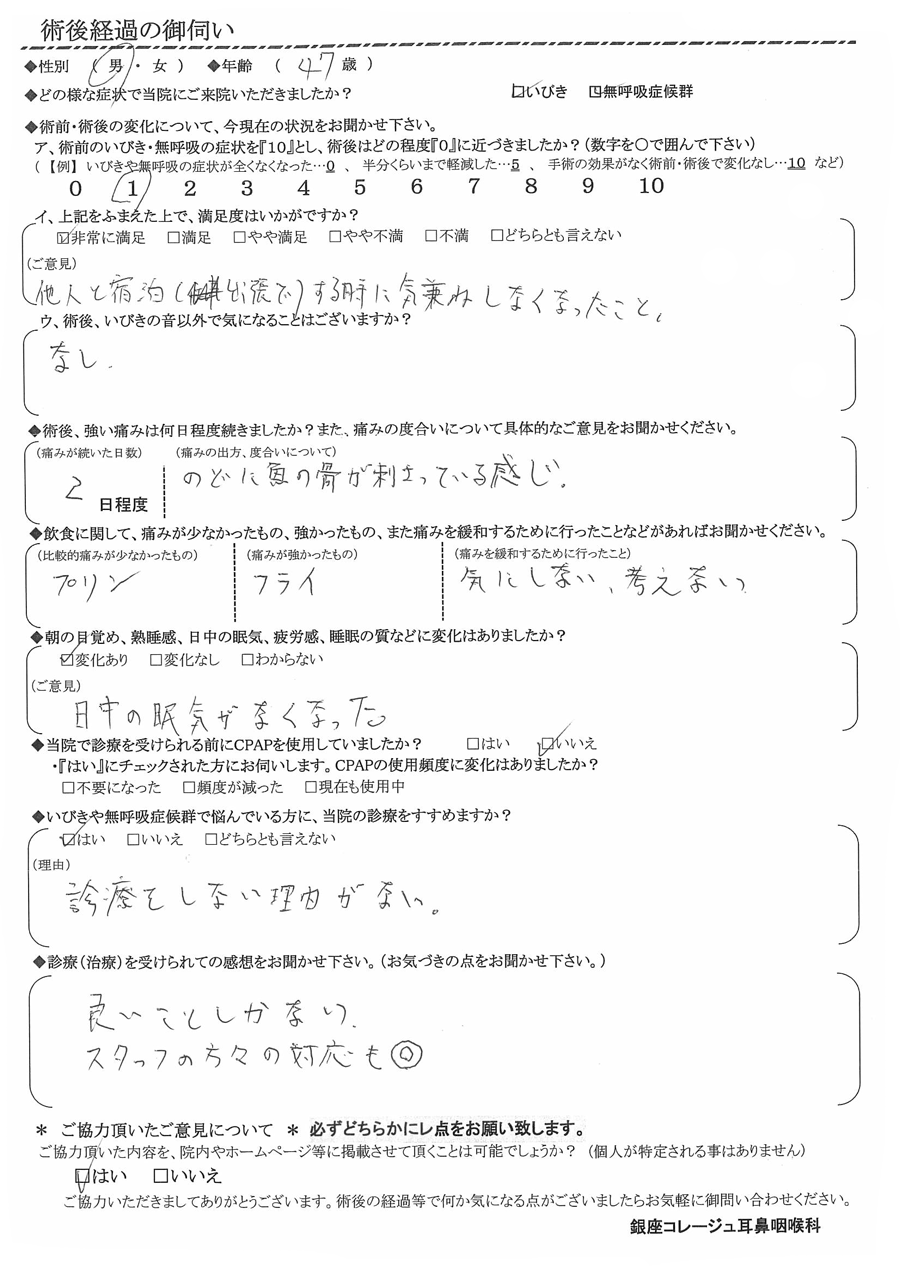 術後経過の御伺い
◆性別 ( 男 ・ 女 ) ◆年齢 ( 47 歳 )
◆どの様な症状で当院にご来院いただきましたか? ☑いびき ☑無呼吸症候群
◆術前・術後の変化について、今現在の状況をお聞かせ下さい。
ア、術前のいびき・無呼吸の症状を『10』とし、術後はどの程度『0』に近づきましたか?(数字を〇で囲んで下さい)
(【例】 いびきや無呼吸の症状が全くなくなった…0 、 半分くらいまで軽減した…5 、 手術の効果がなく術前・術後で変化なし…10 など)
0 1 2 3 4 5 6 7 8 9 10
イ、上記をふまえた上で、満足度はいかがですか?
☑非常に満足 □満足 □やや満足 □やや不満 □不満 □どちらとも言えない
(ご意見)
他人と宿泊(出張で)する時に気兼ねしなくなったこと。
ウ、術後、いびきの音以外で気になることはございますか?
なし.
◆術後、強い痛みは何日程度続きましたか?また、痛みの度合いについて具体的なご意見をお聞かせください。
(痛みが続いた日数) (痛みの出方、度合いについて)
2 日程度 のどに魚の骨が刺さっている感じ.
◆飲食に関して、痛みが少なかったもの、強かったもの、また痛みを緩和するために行ったことなどがあればお聞かせください。
(比較的痛みが少なかったもの) (痛みが強かったもの) (痛みを緩和するために行ったこと)
プリン フライ 気にしない、考えない
◆朝の目覚め、熟睡感、日中の眠気、疲労感、睡眠の質などに変化はありましたか?
☑変化あり □変化なし □わからない
(ご意見)
日中の眠気がなくなった。
◆当院で診療を受けられる前にCPAPを使用していましたか? □はい ☑いいえ
・『はい』にチェックされた方にお伺いします。CPAPの使用頻度に変化はありましたか?
□不要になった □頻度が減った □現在も使用中
◆いびきや無呼吸症候群で悩んでいる方に、当院の診療をすすめますか?
☑はい □いいえ □どちらとも言えない
(理由)
診療をしない理由がない。
◆診療(治療)を受けられての感想をお聞かせ下さい。(お気づきの点をお聞かせ下さい。)
良いことしかない.
スタッフの方々の対応も◎
* ご協力頂いたご意見について * 必ずどちらかにレ点をお願い致します。
ご協力頂いた内容を、院内やホームページ等に掲載させて頂くことは可能でしょうか? (個人が特定される事はありません)
☑はい □いいえ
ご協力いただきましてありがとうございます。術後の経過等で何か気になる点がございましたらお気軽に御問い合わせください。
銀座コレージュ耳鼻咽喉科